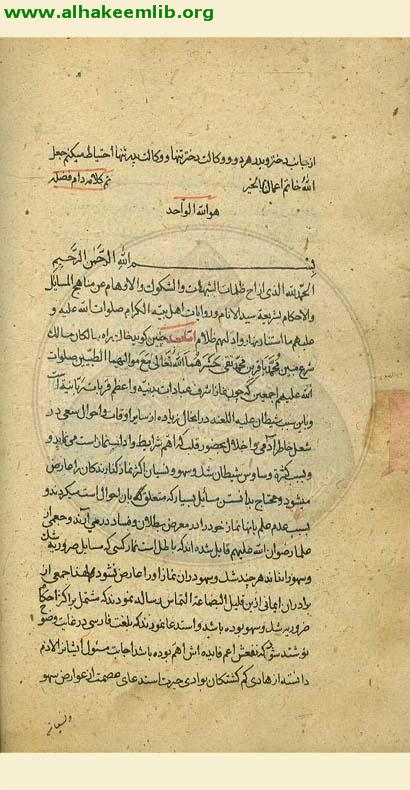 www.alhakeemlib.org
از جانب دختر و پدر هر دو و وکالت دختر تنها و وکالت پدر تنها احتیاط میکنم جعل
الله خاتم اعمالک الخیر تم کلامه دام فضله
هو الله الواحد
بسم الله الرحمن الرحیم
الحمد لله الذی ازاح ظلمات الشبهات و الشکوک و الاوهام عن مناهج المسائل
و الاحکام بشریعة سید الانام و روایات اهل بیته الکرام صلوات الله علیه و
علیهم ما استنار نهار و ادلهم ظلام اما بعد چنین کوید خاک راه سالکان مسالک
شرع مبین محمد باقر بن محمد تقی حشرهما الله تعالی مع موالیهما الطیبین صلوات
الله علیهم اجمعین که چون نماز اشرف عبادات بدنیه و اعظم قربات ربانیه است
و باین سبب شیطان علیه اللعنه در انحال زیاده از سایر اوقات و احوال سعی در
شغل خاطر آدمی و اخلال بحضور قلب که اهم شرایط و اداب نماز است می نماید و
بسبب کثرة وساوس شیطان شک و سهو و نسیان اکثر نماز گذارندگان را عارض
میشود و محتاج بدانستن مسائل بسیار که متعلق باین احوال است میکردند و
بسبب عدم علم بانها نماز خود را در معرض بطلان و فساد در می آرند و جمعی از
علما رضوان الله علیهم قایل شده اند که باطل است نماز کسی که مسایل ضروریه شک
و سهو را نداند هر چند شک و سهو در ان نماز او را عارض نشود لهذا جمعی از
برادران ایمانی ازین قلیل البضاعة التماس رساله نمودند که مشتمل بر اکثر احکام
ضروریه شک و سهو بوده باشد و استدعا نمودند که بلغت فارسی در غایت وضوح
نوشته شود که نفعش اعم و فایده اش اهم بوده باشد اجابت مسئول ایشان را لازم
دانسته از هادی کم کشتکان بوادی حیرت استدعای عصمت از عوارض سهو
و نسیان